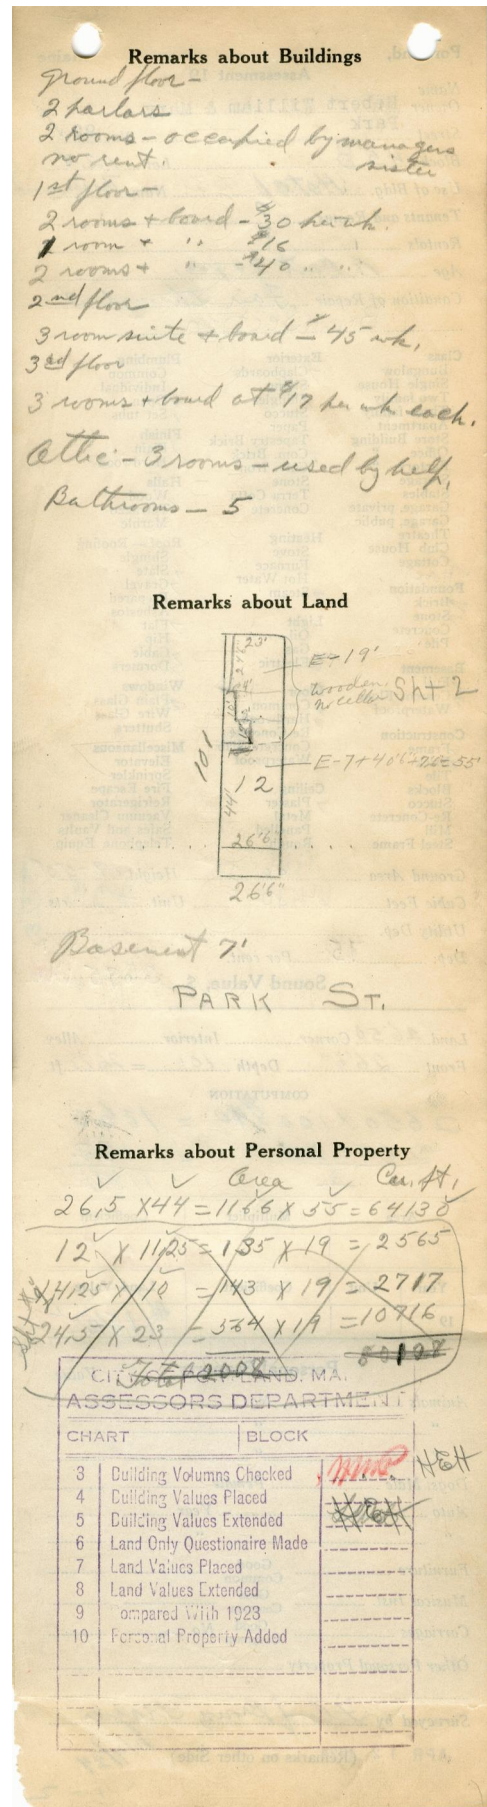 Remarks about Buildings
Ground floor -
2 parlars
2 rooms - occupied by managers
no rent. sister
1st floor -
2 rooms + board - $30 per wk.
1 room + " $16
2 rooms + " - $40 " "
2nd floor
3 room suite + board - $45 wk.
3rd floor
3 rooms + board at $17 per wk each.
Attic - 3 rooms - used by help.
Bathrooms - 5
Remarks about Land
23'
E-19'
wooden
no cellar Sht 2
101
E-7+40'6"+7'6"=55'
12
44'
26'6"
26'6"
Basement 7'
PARK ST.
Remarks about Personal Property
Area Cu. ft.
26.5 x 44 = 1166 x 55 = 64130
12 x 11.25 = 135 x 19 = 2565
14.25 x 10 = 143 x 19 = 2717
24.5 x 23 = 564 x 19 = 10716
Total 2008 80128
CITY OF PORTLAND, MA.
ASSESSORS DEPARTMENT
CHART BLOCK
3 Building Volumns Checked HEH
4 Building Values Placed
5 Building Values Extended
6 Land Only Questionaire Made
7 Land Values Placed
8 Land Values Extended
9 ompared With 1923
10 Personal Property Added